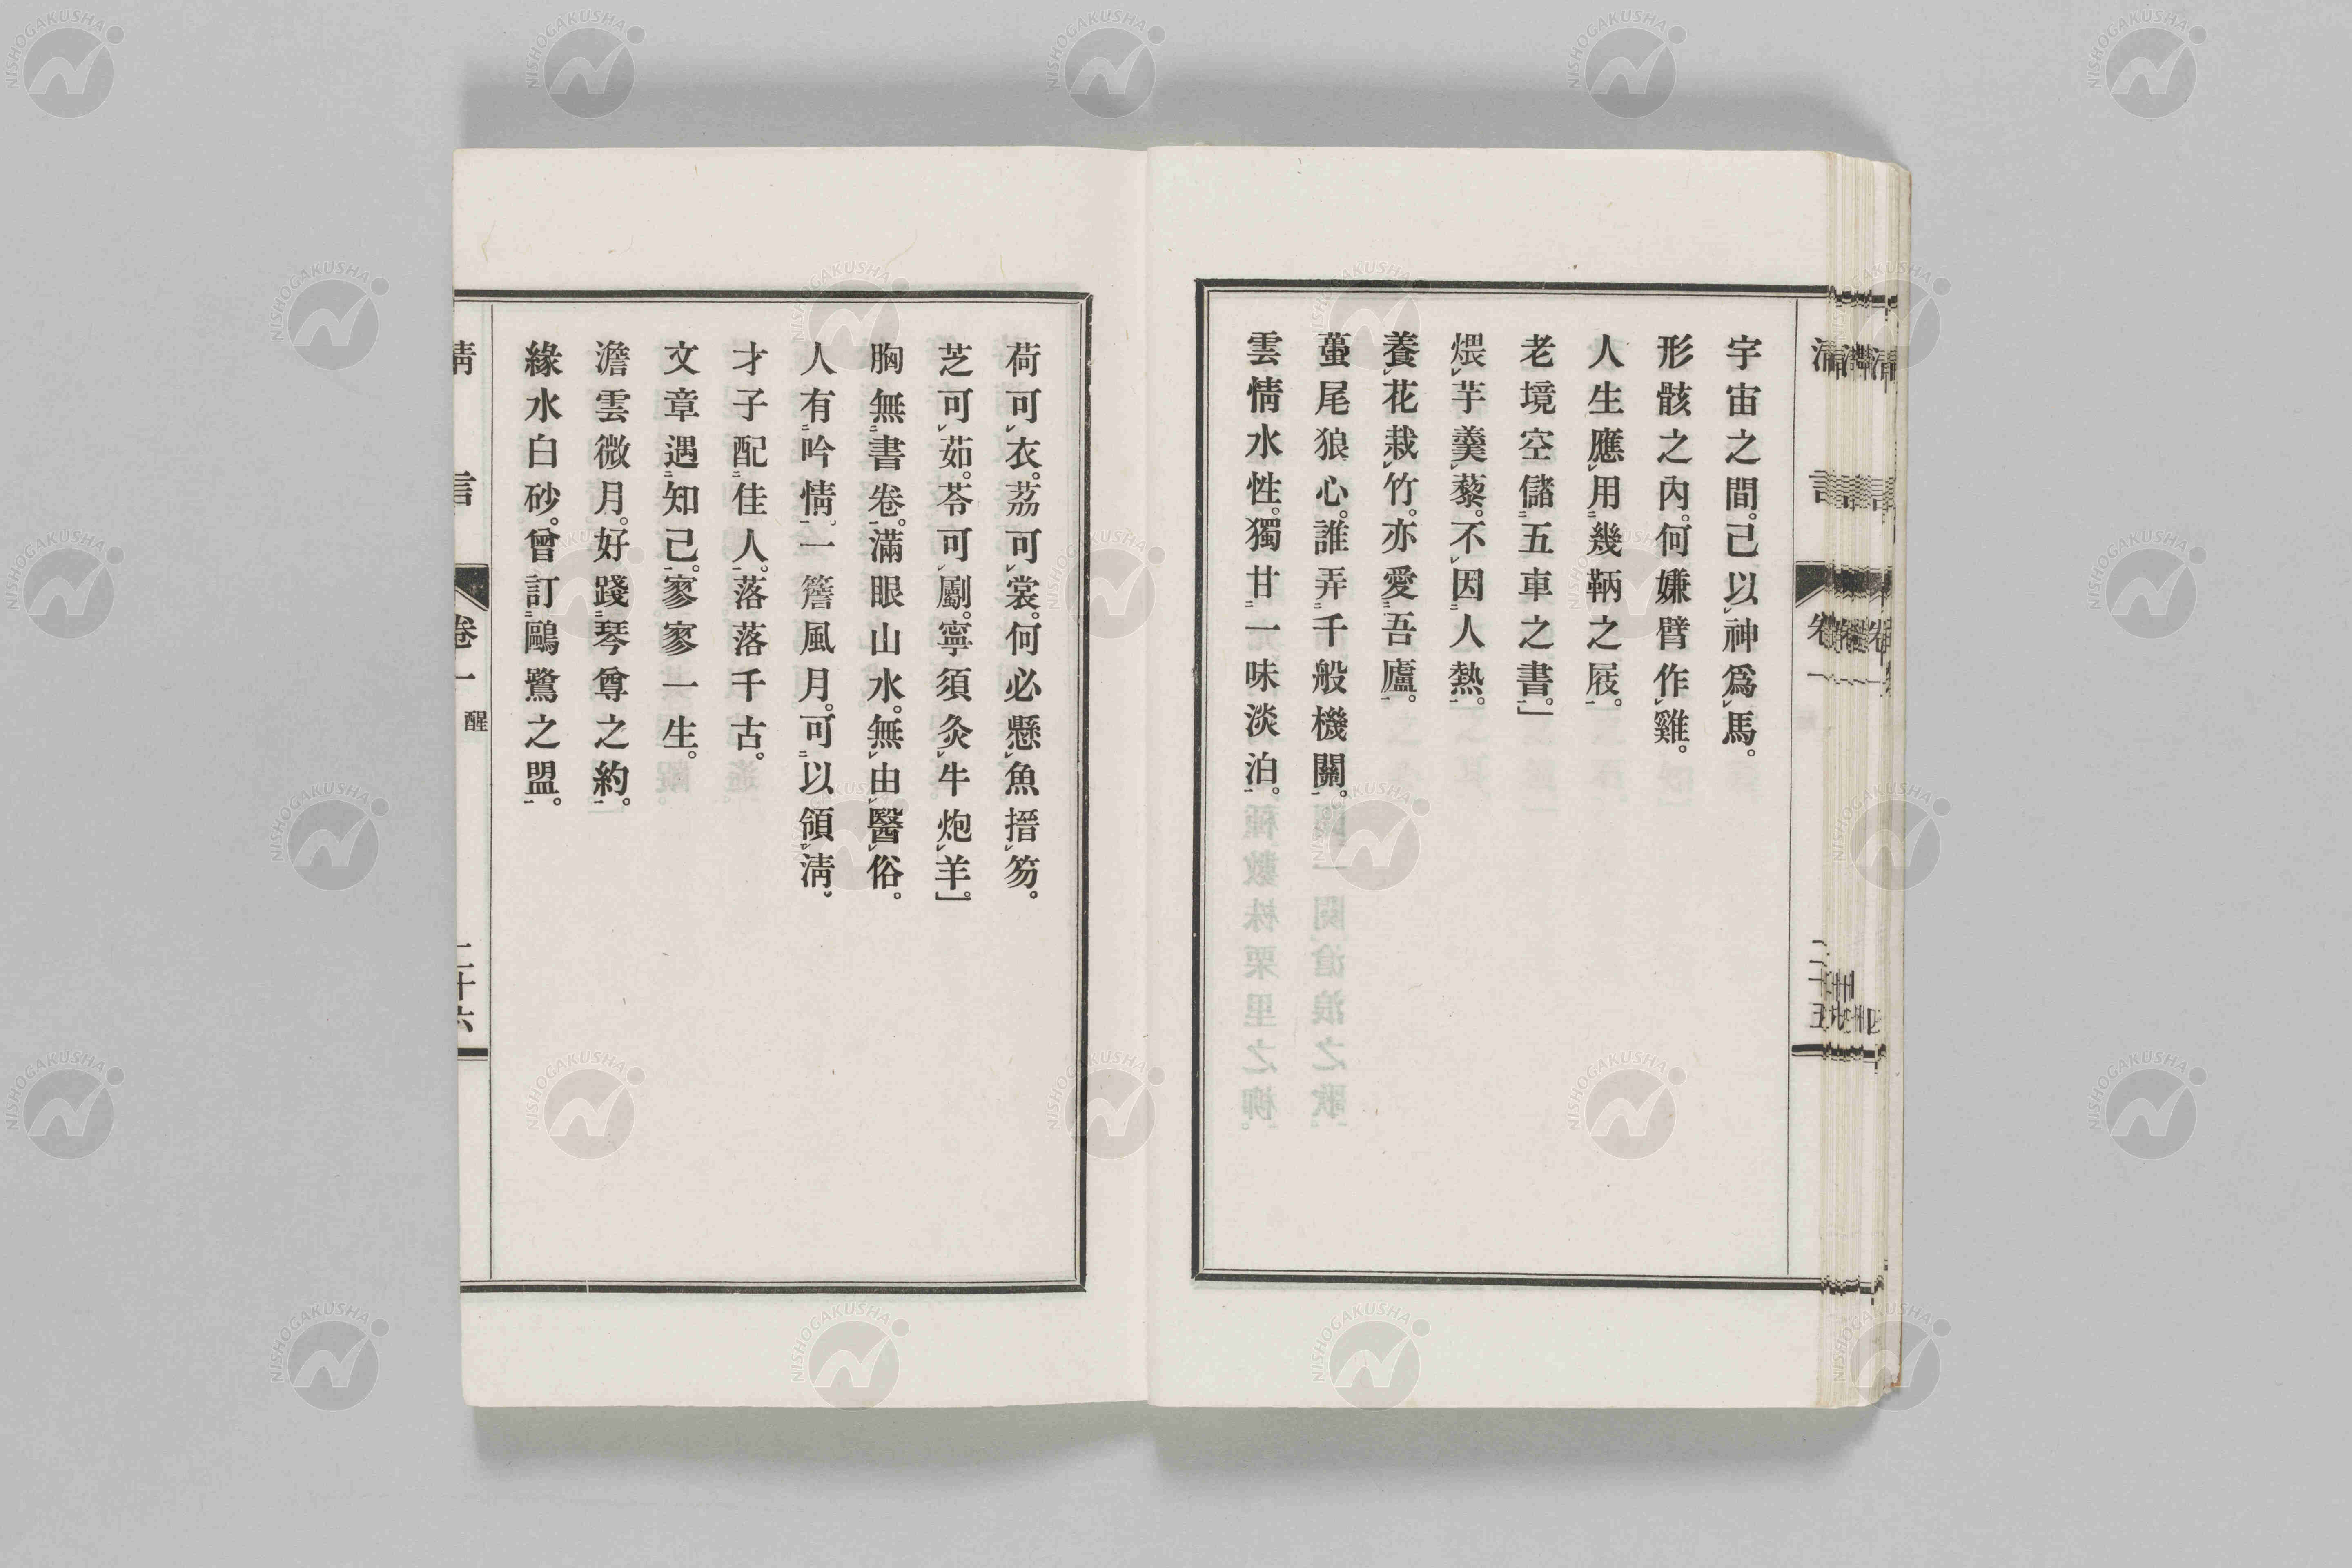 宇宙之間。己以神爲馬。
形骸之內。何嫌臂作雞。
人生應用幾鞆之屐。
老境空儲五車之書。」
煨芋羹藜。不因人熱。
養花栽竹。亦愛吾廬。
蠆尾狼心。誰弄千般機關。
雲情水性。獨甘一味淡泊。
荷可衣。荔可裳。何必懸魚搢笏。
芝可茹。苓可劚。寧須灸牛炮羊。」
胸無書卷。滿眼山水。無由醫俗。
人有吟情。一簷風月。可以領淸。
才子配佳人。落落千古。
文章遇知己。寥寥一生。
澹雲微月。好踐琴尊之約。
緣水白砂。曾訂鷗鷺之盟。
淸言
卷一
二十五
淸言
卷一
醒
二十六
NISHOGAKUSHA